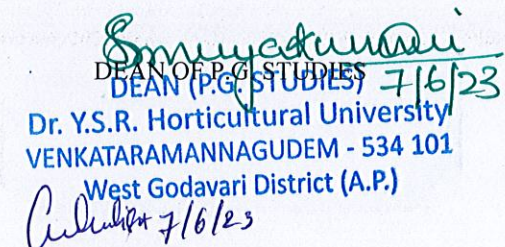 DEAN OF P.G. STUDIES
DEAN (P.G. STUDIES) 7/6/23
Dr. Y.S.R. Horticultural University
VENKATARAMANNAGUDEM - 534 101
West Godavari District (A.P.)
7/6/23